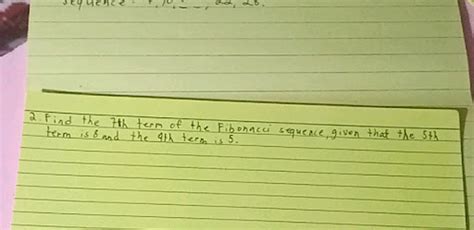 sequence: 4, 10, _ _, 22, 28.
2. Find the 7th term of the Fibonacci sequence, given that the 5th
term is 8 and the 4th term is 5.